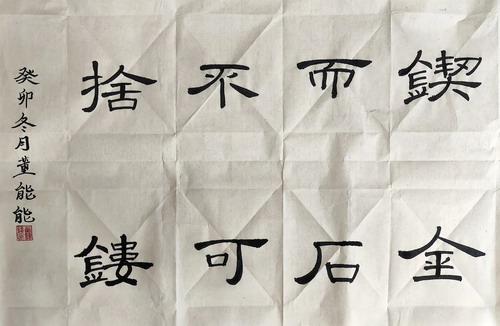 鍥而不捨
金石可鏤
癸卯冬月董能能